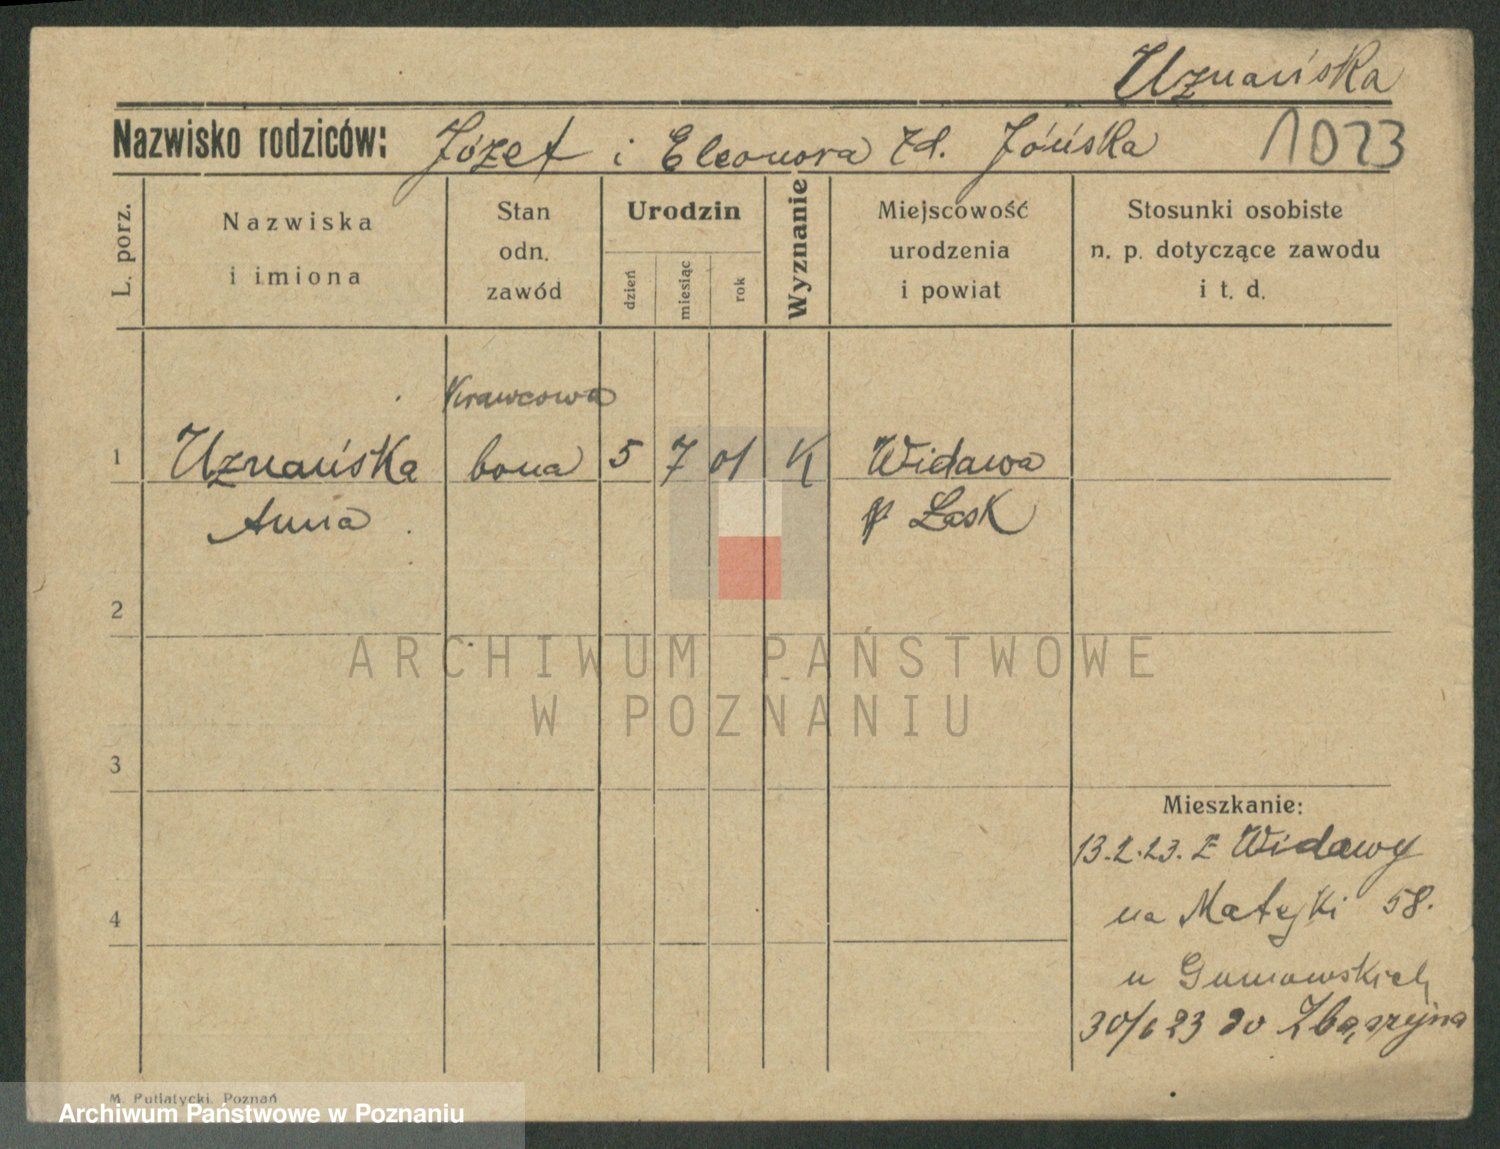 Uznańska
Nazwisko rodziców: Józef i Eleonora zd. Jóńska 1023
L. porz.
Nazwiska
i imiona
Stan
odn.
zawód
Urodzin
dzień
miesiąc
rok
Wyznanie
Miejscowość
urodzenia
i powiat
Stosunki osobiste
n. p. dotyczące zawodu
i t. d.
Krawcowa
1 Uznańska bona 5 7 01 K Widawa
Anna p Łask
2
3
4
Mieszkanie:
13.2.23. z Widawy
na Matejki 58.
u Gumowskich
30/6 23 do Zbąszynia
M. Putiatycki, Poznań
ARCHIWUM PAŃSTWOWE
W POZNANIU
Archiwum Państwowe w Poznaniu